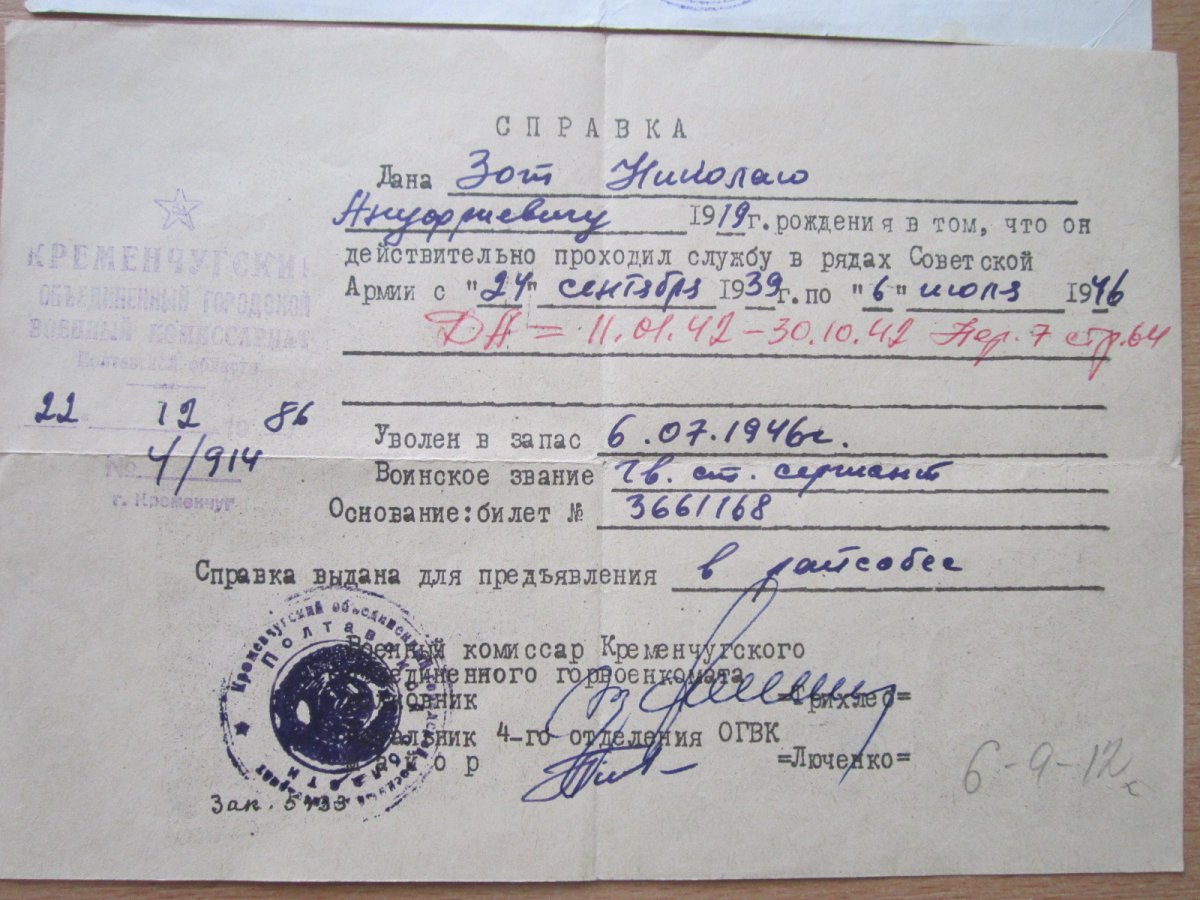 СПРАВКА
Дана Зот Николаю
Ануфриевичу 1919 г. рождения в том, что он
действительно проходил службу в рядах Советской
Армии с "24" сентября 1939 г. по "6" июля 1946
ДА = 11.01.42 – 30.10.42 Пер. 7 стр. 64
КРЕМЕНЧУГСКИЙ
ОБЪЕДИНЕННЫЙ ГОРОДСКОЙ
ВОЕННЫЙ КОМИССАРИАТ
Полтавской области
22 12 19 86
№ 4/914
г. Кременчуг
Уволен в запас 6.07.1946г.
Воинское звание гв. ст. сержант
Основание: билет № 3661168
Справка выдана для предъявления в райсобес
Военный комиссар Кременчугского
объединенного горвоенкомата
полковник =Грихлес=
Начальник 4-го отделения ОГВК
майор =Люченко=
Кременчугский объединенный
Полтавской области
Зак. 5733
6-9-12